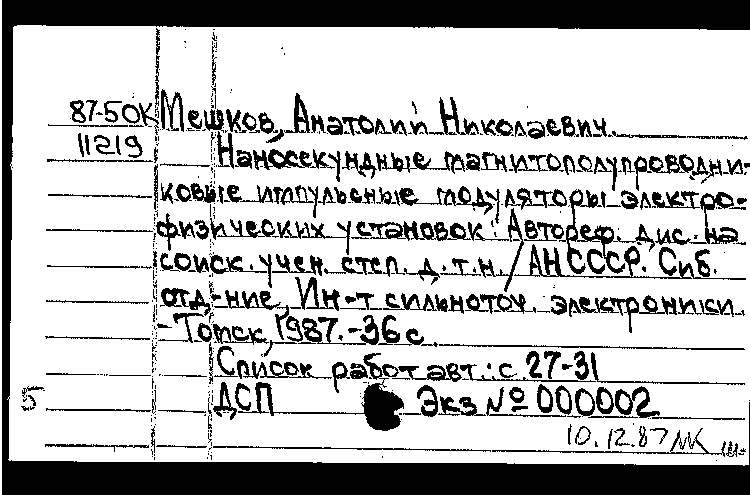 87-50К Мешков, Анатолий Николаевич.
11219 Наносекундные магнитополупроводни-
ковые импульсные модуляторы электро-
физических установок: Автореф. дис. на
соиск. учен. степ. д.т.н. / АН СССР. Сиб.
отд-ние, Ин-т сильноточ. электроники.
-Томск, 1987.-36 с.
Список работ авт.: с. 27-31
5 ДСП Экз № 000002
10.12.87 МК